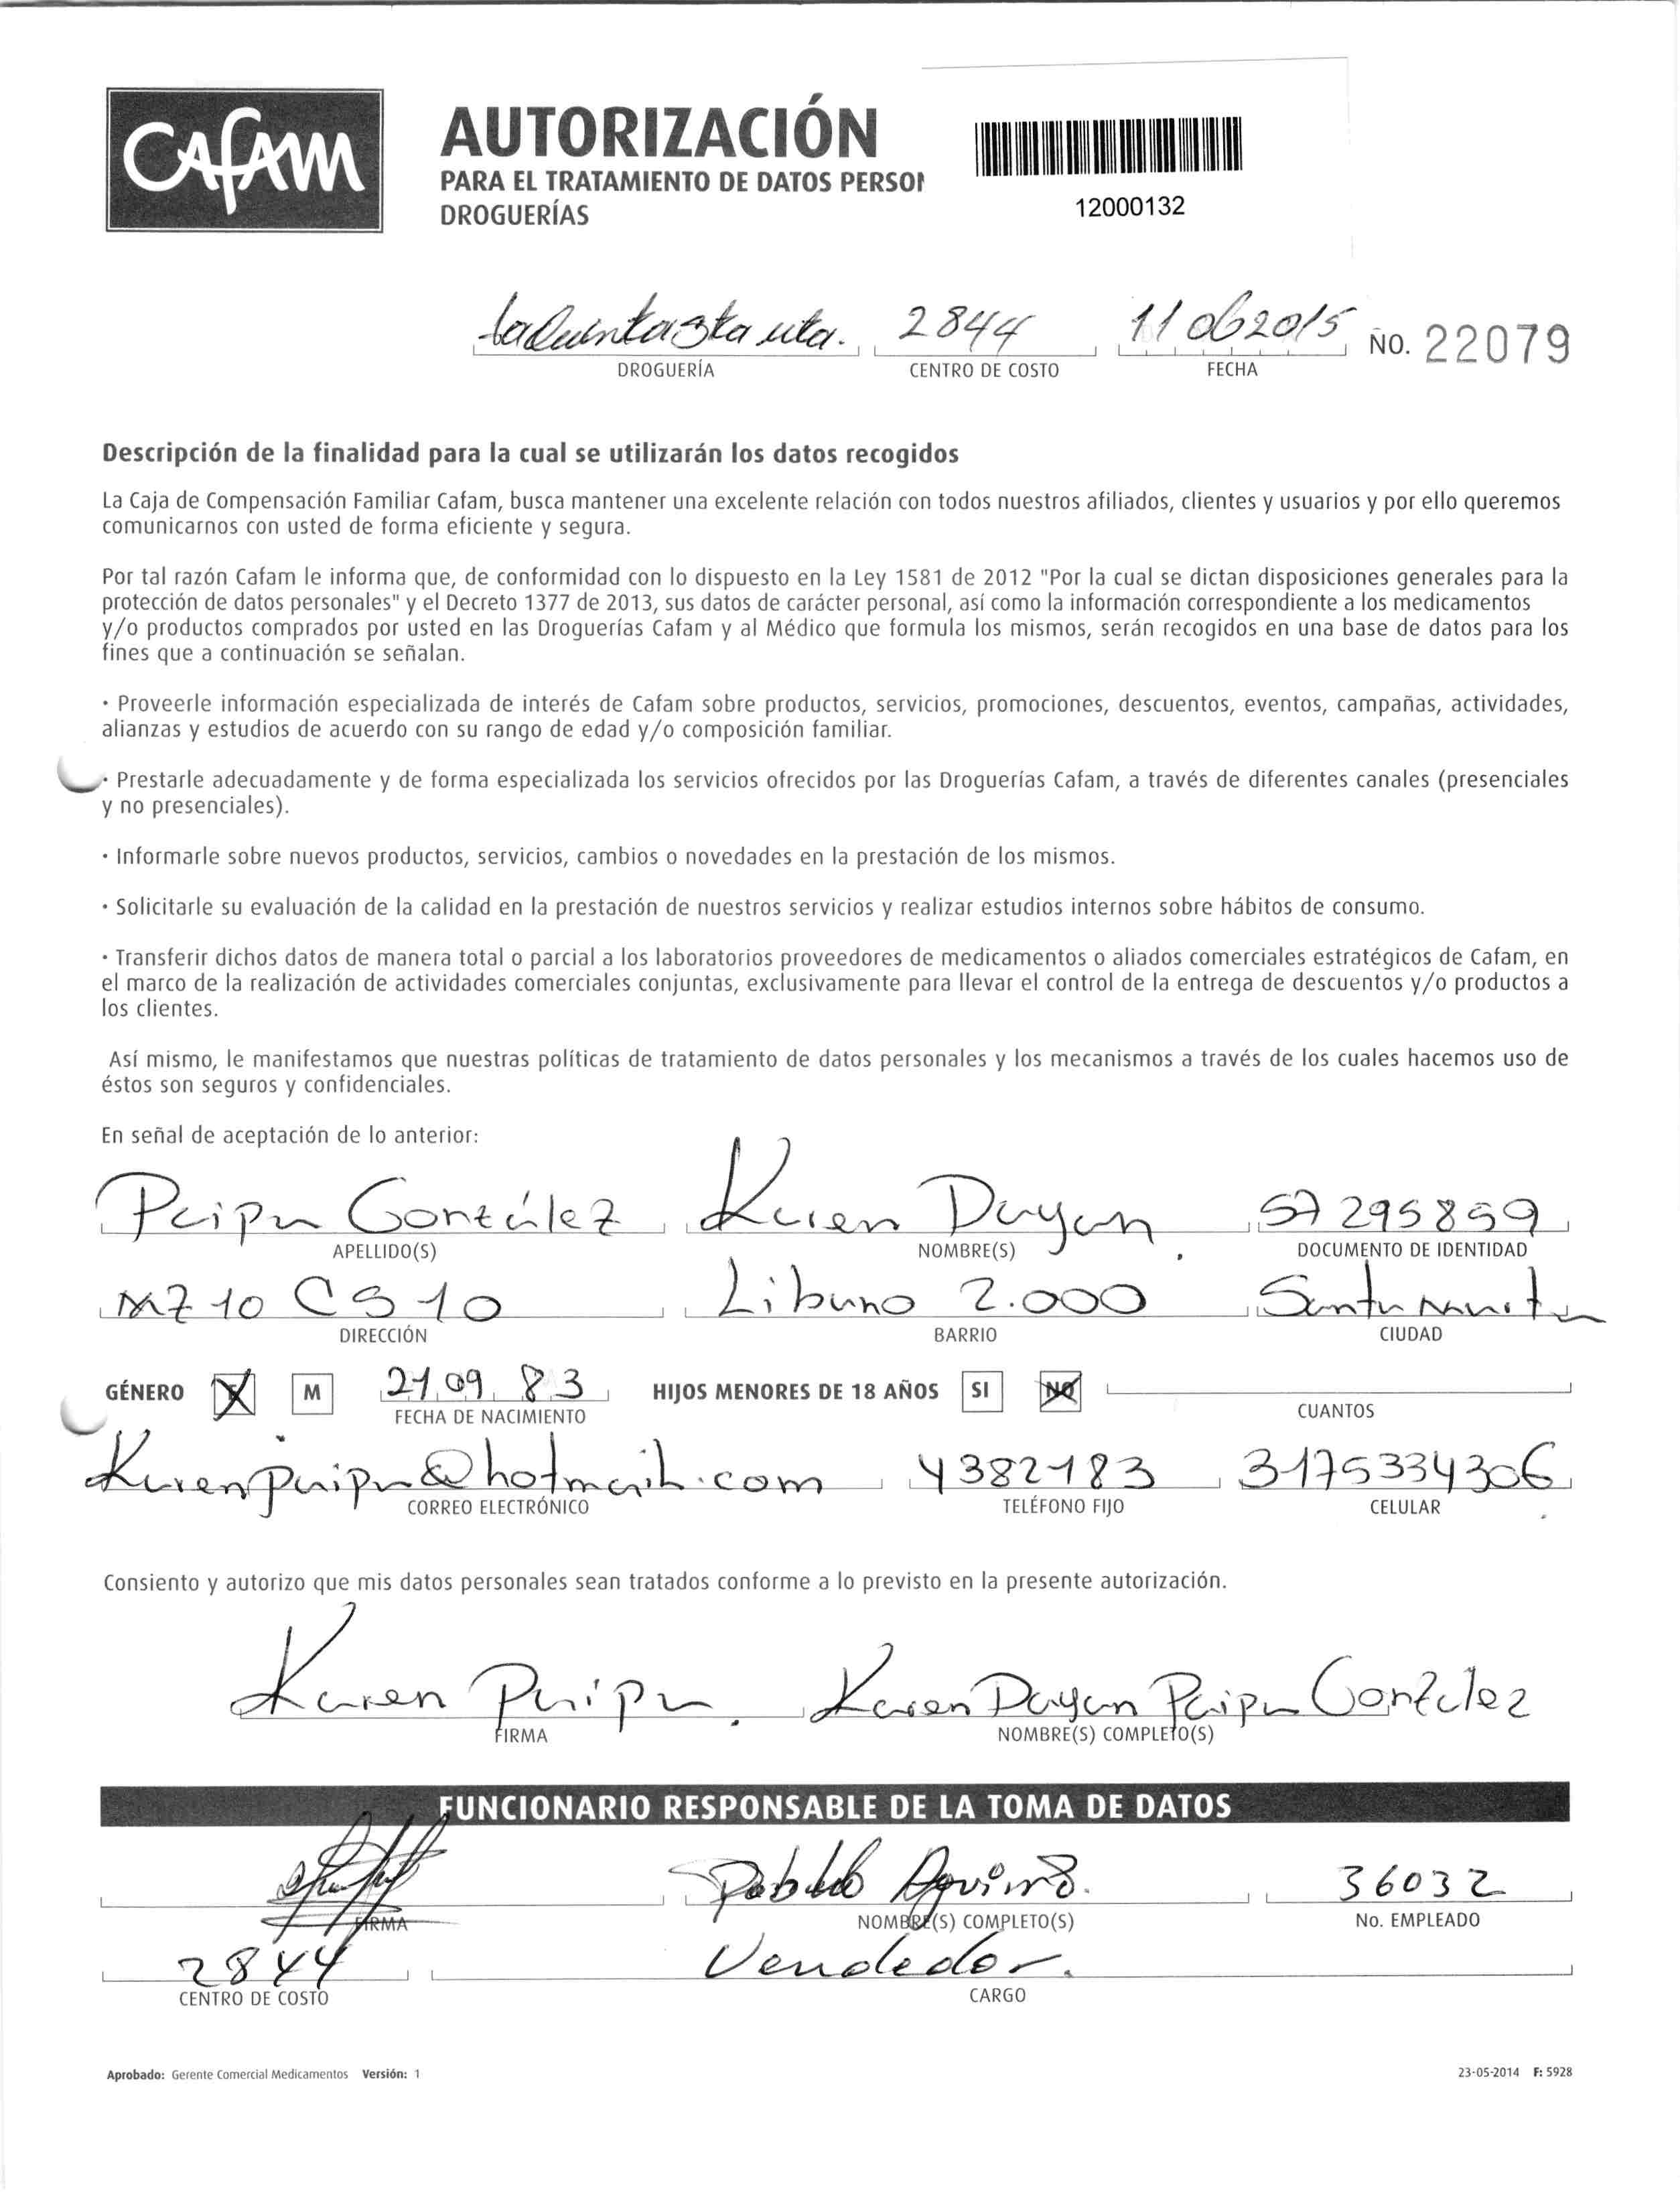 CAFAM
AUTORIZACIÓN
PARA EL TRATAMIENTO DE DATOS PERSO
DROGUERÍAS
12000132
La Quinta Sta Mta. 2844 11 06 2015 NO. 22079
DROGUERÍA CENTRO DE COSTO FECHA
Descripción de la finalidad para la cual se utilizarán los datos recogidos
La Caja de Compensación Familiar Cafam, busca mantener una excelente relación con todos nuestros afiliados, clientes y usuarios y por ello queremos
comunicarnos con usted de forma eficiente y segura.
Por tal razón Cafam le informa que, de conformidad con lo dispuesto en la Ley 1581 de 2012 "Por la cual se dictan disposiciones generales para la
protección de datos personales" y el Decreto 1377 de 2013, sus datos de carácter personal, así como la información correspondiente a los medicamentos
y/o productos comprados por usted en las Droguerías Cafam y al Médico que formula los mismos, serán recogidos en una base de datos para los
fines que a continuación se señalan.
· Proveerle información especializada de interés de Cafam sobre productos, servicios, promociones, descuentos, eventos, campañas, actividades,
alianzas y estudios de acuerdo con su rango de edad y/o composición familiar.
· Prestarle adecuadamente y de forma especializada los servicios ofrecidos por las Droguerías Cafam, a través de diferentes canales (presenciales
y no presenciales).
· Informarle sobre nuevos productos, servicios, cambios o novedades en la prestación de los mismos.
· Solicitarle su evaluación de la calidad en la prestación de nuestros servicios y realizar estudios internos sobre hábitos de consumo.
· Transferir dichos datos de manera total o parcial a los laboratorios proveedores de medicamentos o aliados comerciales estratégicos de Cafam, en
el marco de la realización de actividades comerciales conjuntas, exclusivamente para llevar el control de la entrega de descuentos y/o productos a
los clientes.
Así mismo, le manifestamos que nuestras políticas de tratamiento de datos personales y los mecanismos a través de los cuales hacemos uso de
éstos son seguros y confidenciales.
En señal de aceptación de lo anterior:
Paipa González Karen Dayan. 57295859
APELLIDO(S) NOMBRE(S) DOCUMENTO DE IDENTIDAD
MZ 10 CS 10 Libano 2.000 Santa Marta
DIRECCIÓN BARRIO CIUDAD
GÉNERO F M 21 09 83 HIJOS MENORES DE 18 AÑOS SI NO
FECHA DE NACIMIENTO CUANTOS
Karenpaipa@hotmail.com 4382183 3175334306
CORREO ELECTRÓNICO TELÉFONO FIJO CELULAR
Consiento y autorizo que mis datos personales sean tratados conforme a lo previsto en la presente autorización.
Karen Paipa. Karen Dayan Paipa González
FIRMA NOMBRE(S) COMPLETO(S)
FUNCIONARIO RESPONSABLE DE LA TOMA DE DATOS
36032
FIRMA NOMBRE(S) COMPLETO(S) No. EMPLEADO
2844 Vendedor.
CENTRO DE COSTO CARGO
Aprobado: Gerente Comercial Medicamentos Versión: 1 23-05-2014 F: 5928